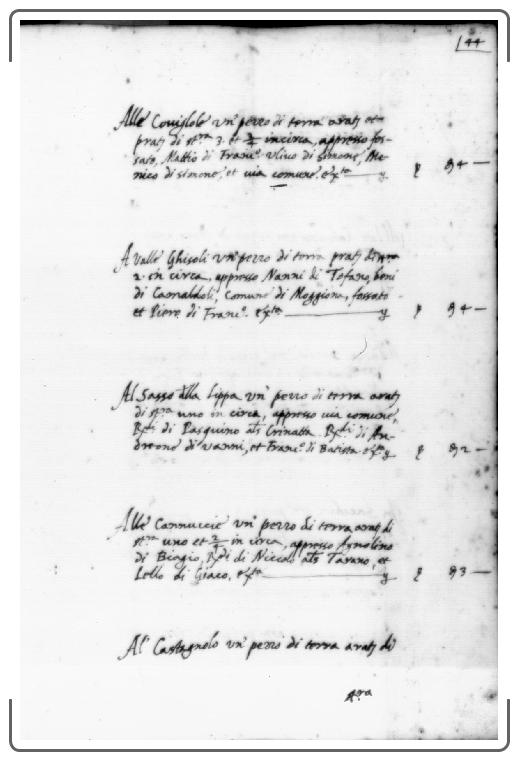 44
Alle Coviglole un' pezzo di terra arat. et
prat. di st.ra 3. et 3/4 incirca, appresso fos-
sato, Mattio di Franc.o Ulivo di Simone, Me-
nico di Simone, et via comune. etc.
A Valle Ghisoli un' pezzo di terra prat. di st.ra
2. in circa, appresso Nanni di Tofano, beni
di Camaldoli, Comune di Moggiona, fossato
et Piero di Franc.o etc.
Al Sasso alla Lippa un' pezzo di terra arat.
di st.ra uno in circa, appresso via comune,
Rdi di Pasquino als Crinatta Rdi di An-
dreone di Vanni, et Franc.o di Batista etc.
Alle Cannuccie un' pezzo di terra arat. di
st.ra uno et 2/ in circa, appresso Agnolino
di Biagio, Rdi di Niccolo als Tarano, et
Lello di Giaco. etc.
Al' Castagnolo un' pezzo di terra arat. di
st.ra